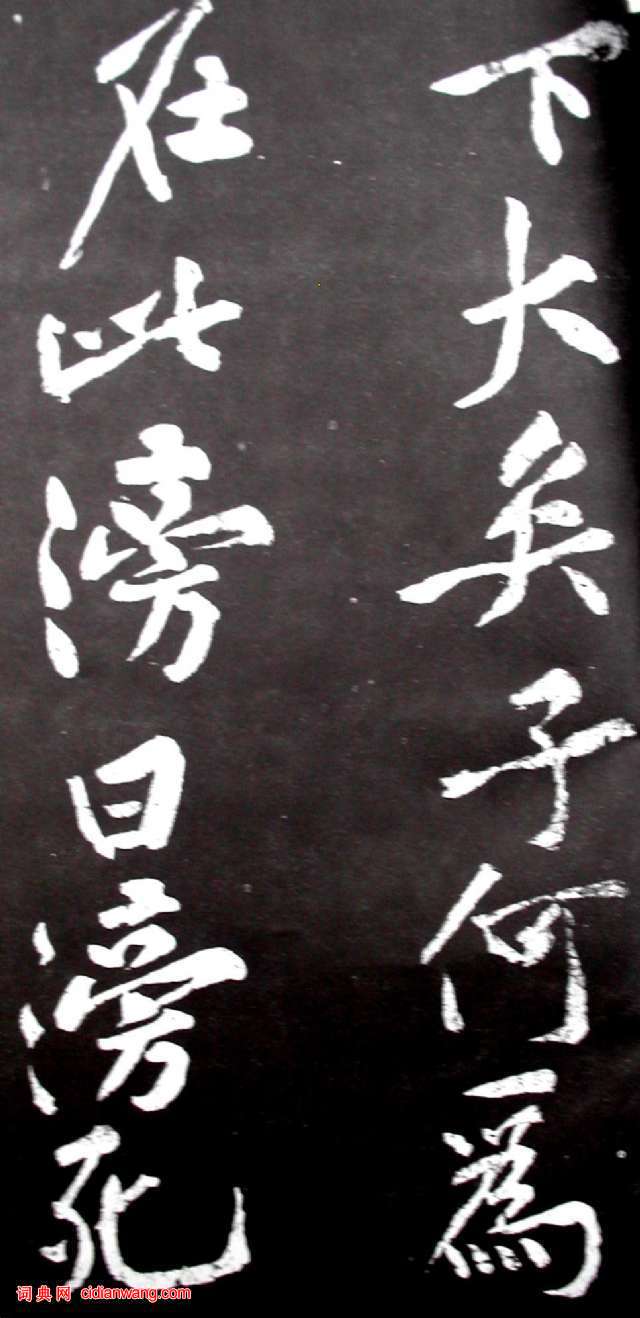 下大矣子何為
在此滂曰滂死
词典网 cidianwang.com